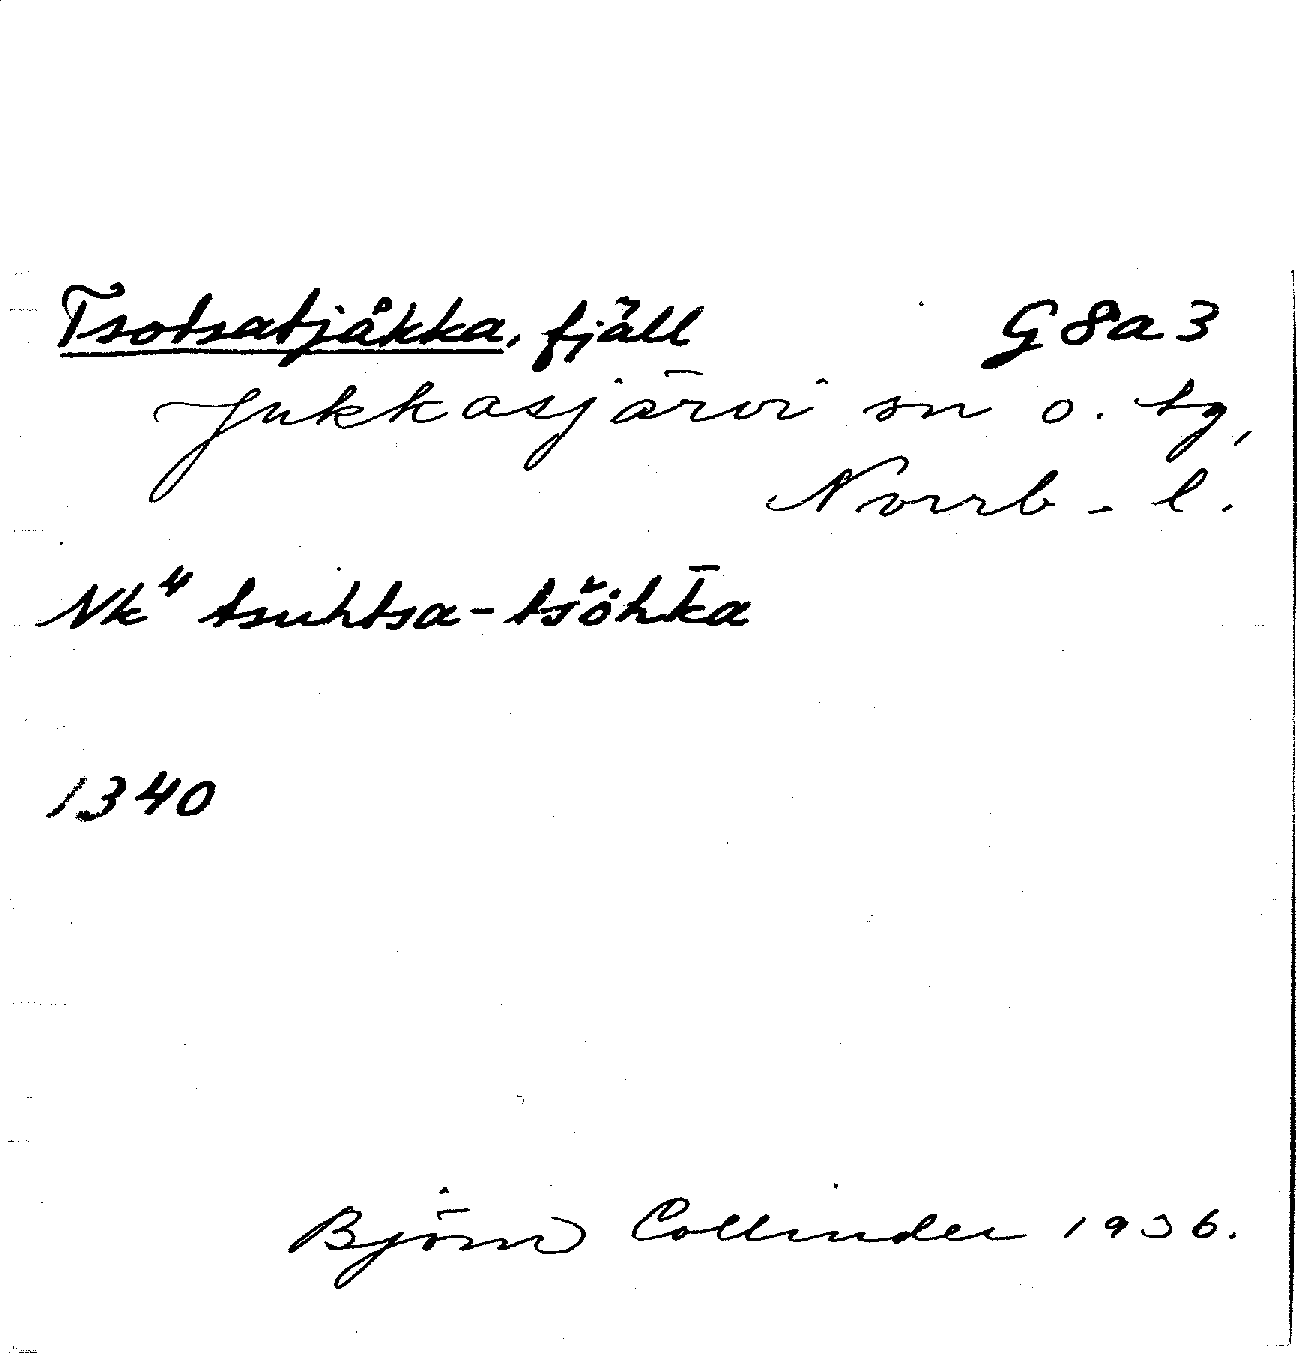 Tsotsatjåkka, fjäll G8a3
Jukkasjärvi sn o. tg,
Norrb. l.
Nk⁴ tsuhtsa-tšöhk̄a
1340
Björn Collinder 1936.